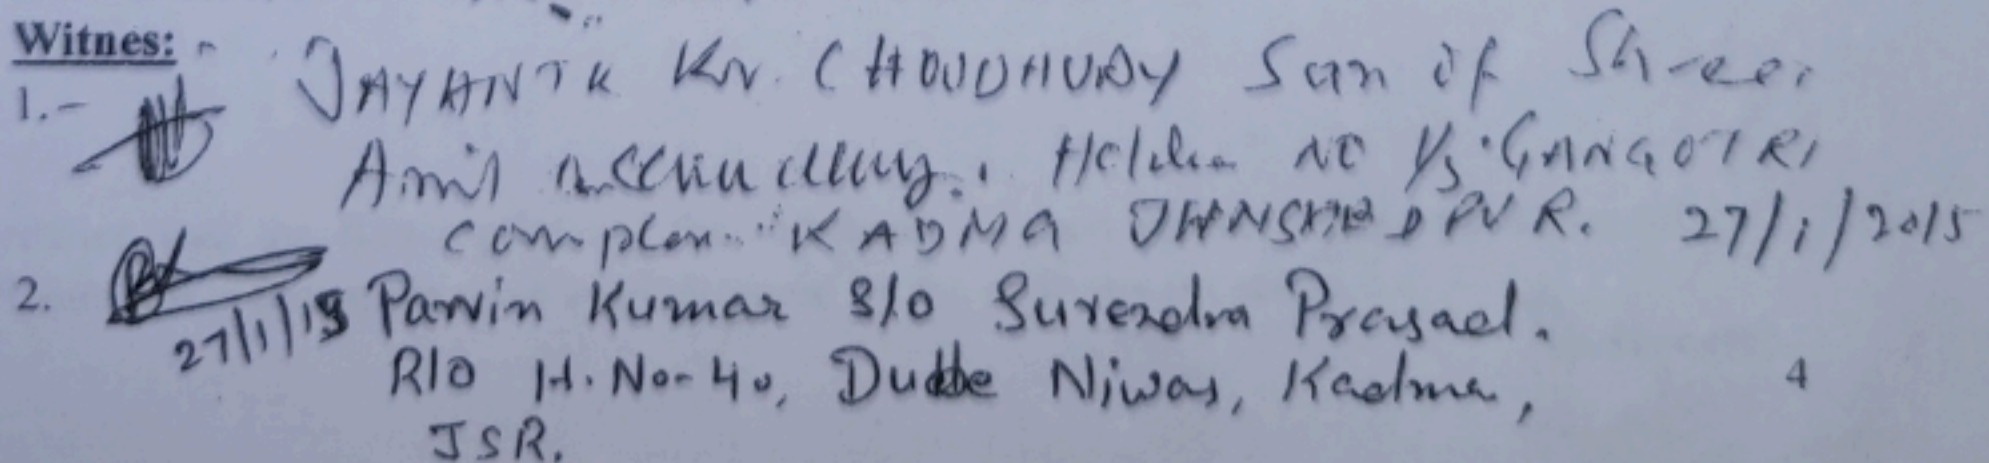 Witnes:
1.- JAYANTA Kr. CHOUDHURY Son of Shree
Amil Choudhury. Holding NO 1/3 GANGOTRI
complex KADMA JHAMSHEDPUR. 27/1/2015
2. Parvin Kumar S/o Surendra Prasad.
27/1/15
R/o H.No-40, Dubbe Niwas, Kadma,
JSR.
4